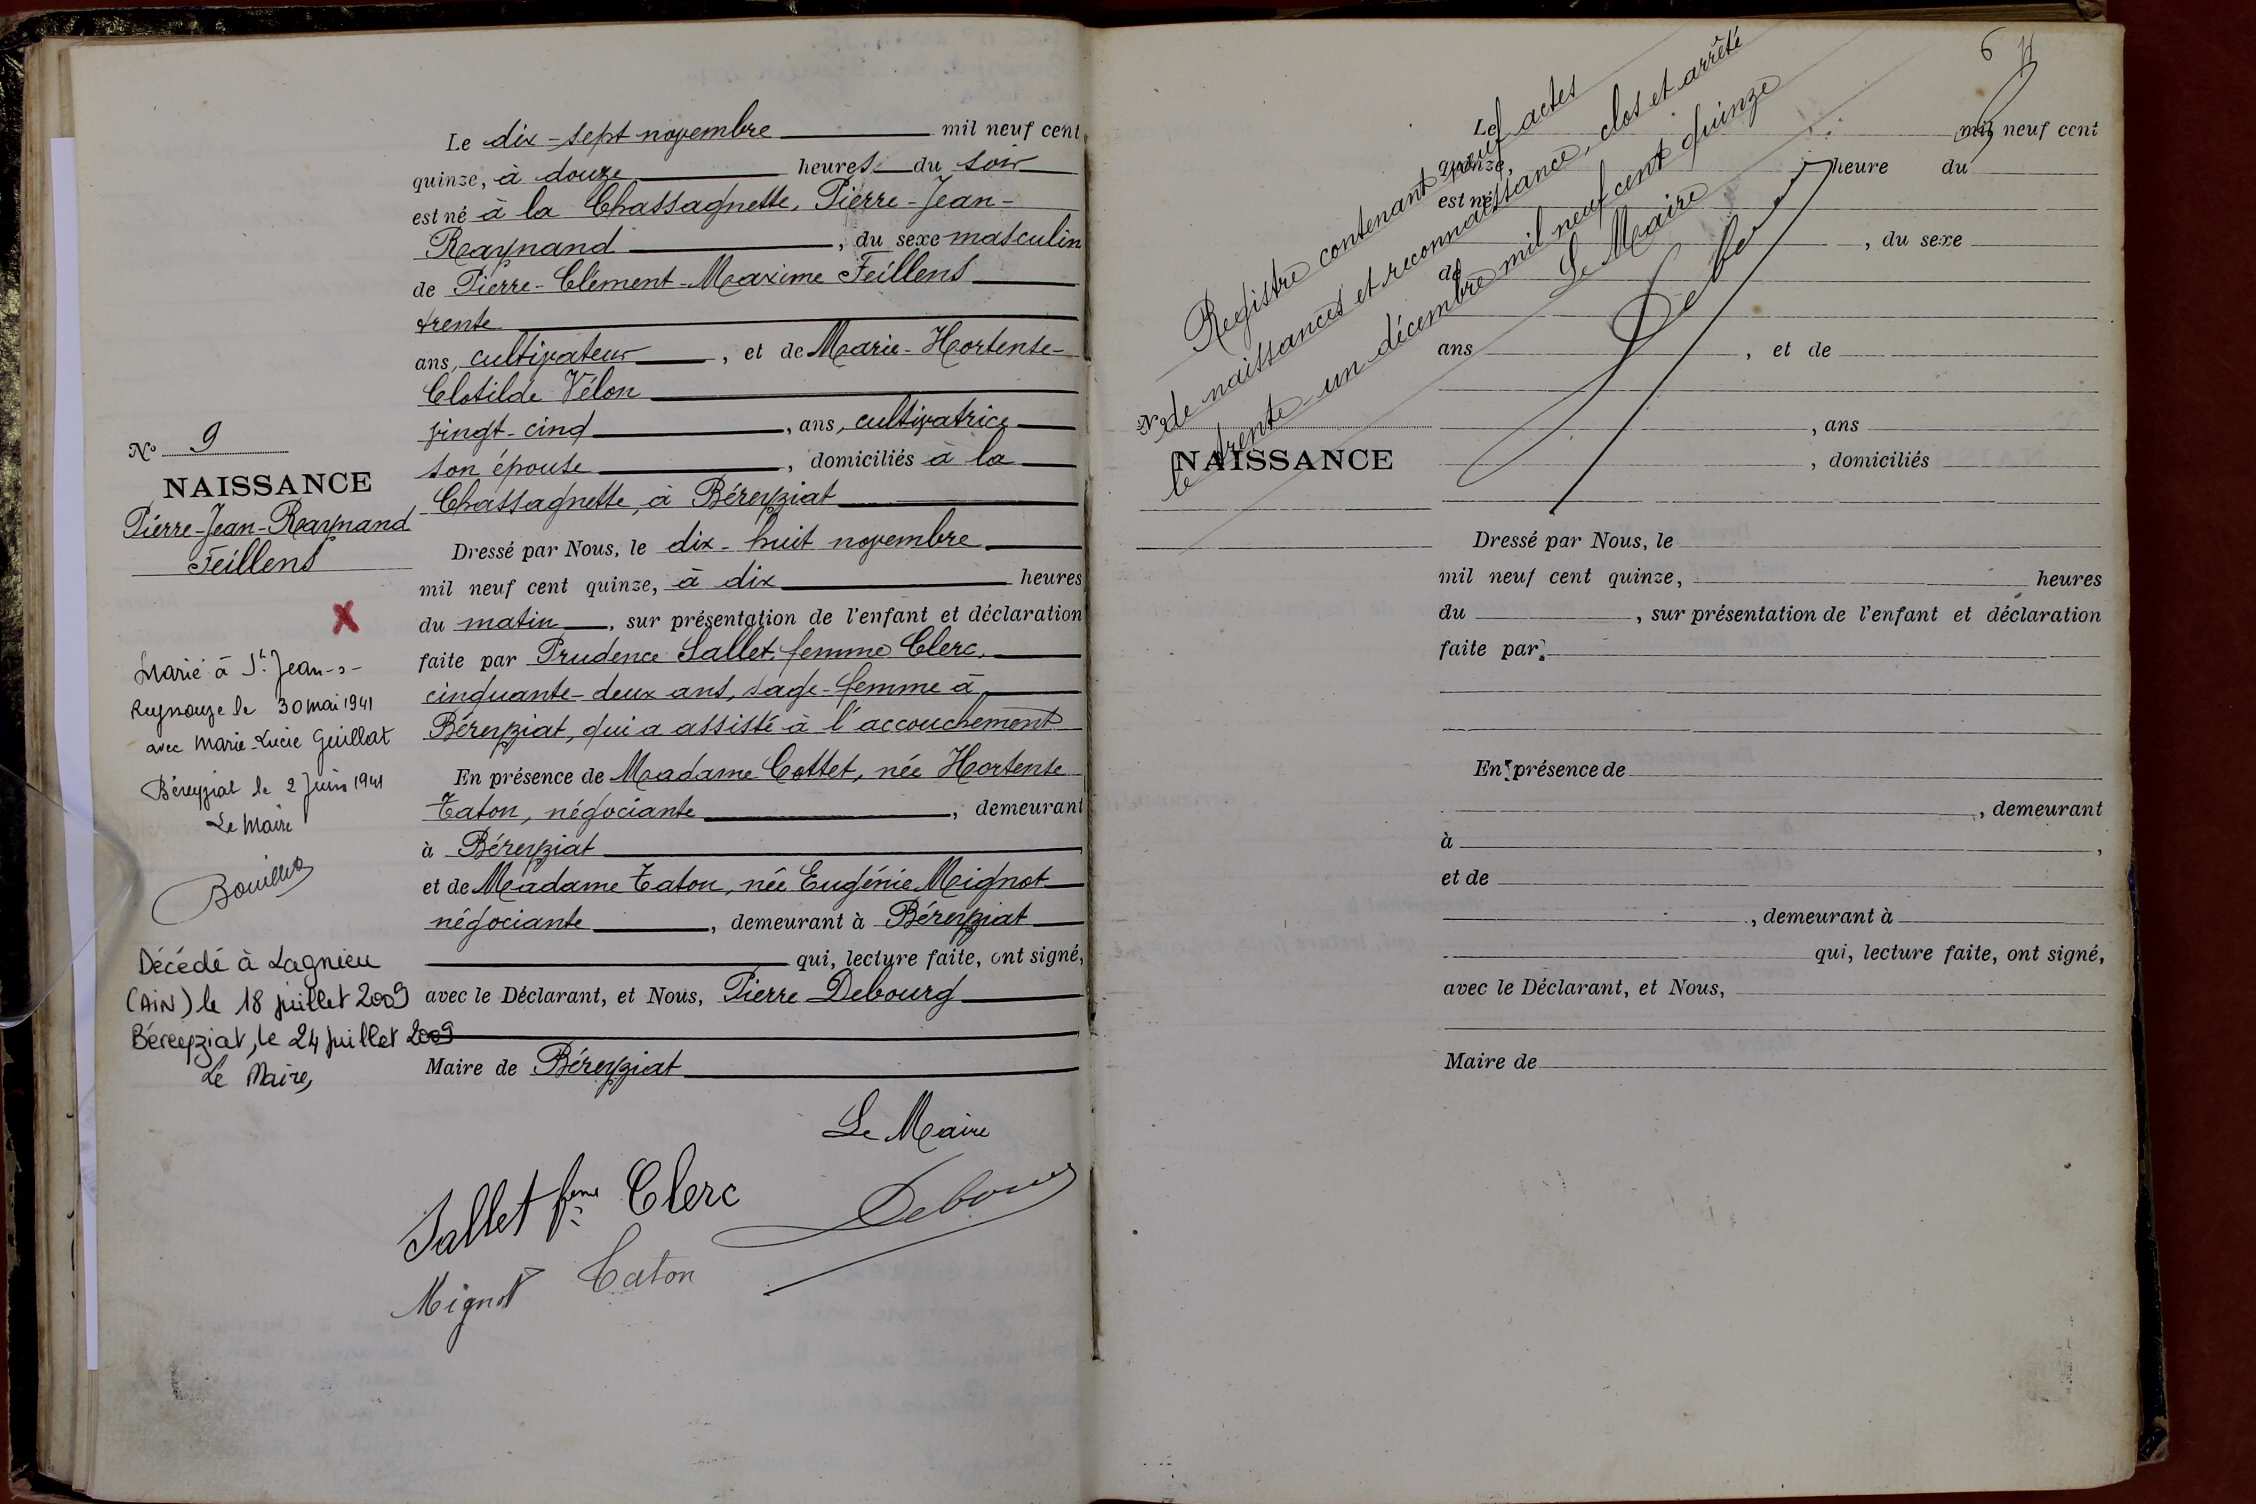 Le dix-sept novembre mil neuf cent
quinze, à douze heures du soir
est né à la Chassagnette, Pierre-Jean-
Raymand, du sexe masculin
de Pierre-Clément-Maxime Feillens
trente
ans, cultivateur, et de Marie-Hortense-
Clotilde Vélon
vingt-cinq, ans, cultivatrice
son épouse, domiciliés à la
Chassagnette, à Béreyziat
Dressé par Nous, le dix-huit novembre
mil neuf cent quinze, à dix heures
du matin, sur présentation de l'enfant et déclaration
faite par Prudence Sallet, femme Clerc,
cinquante-deux ans, sage-femme à
Béreyziat, qui a assisté à l'accouchement
En présence de Madame Cottet, née Hortense
Taton, négociante, demeurant
à Béreyziat
et de Madame Taton, née Eugénie Mignot
négociante, demeurant à Béreyziat
qui, lecture faite, ont signé,
avec le Déclarant, et Nous, Pierre Debourg
Maire de Béreyziat
Le Maire
Sallet fme Clerc
Debourg
Mignot Taton
No 9
NAISSANCE
Pierre-Jean-Raymand
Feillens
X
Marié à St Jean-s-
Reyssouze le 30 mai 1941
avec Marie-Lucie Guillat
Béreyziat le 2 Juin 1941
Le Maire
Décédé à Lagnieu
(AIN) le 18 juillet 2009
Béreyziat, le 24 juillet 2009
Le Maire,
6
Registre contenant neuf actes
de naissances et reconnaissance, clos et arrêté
le trente-un décembre mil neuf cent quinze
Le Maire
Debourg
No
NAISSANCE
Le mil neuf cent
quinze, heure du
est né
, du sexe
de
ans , et de
, ans
, domiciliés
Dressé par Nous, le
mil neuf cent quinze, heures
du , sur présentation de l'enfant et déclaration
faite par
En présence de
, demeurant
à ,
et de
, demeurant à
qui, lecture faite, ont signé,
avec le Déclarant, et Nous,
Maire de